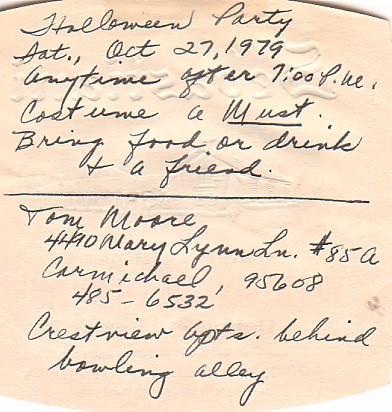 Halloween Party
Sat., Oct 27, 1979
Anytime after 7:00 P.M.
Costume a Must.
Bring food or drink
& a friend.
Tom Moore
4490 Mary Lynn Ln. #85A
Carmichael, 95608
485-6532
Crestview Apts. behind
bowling alley